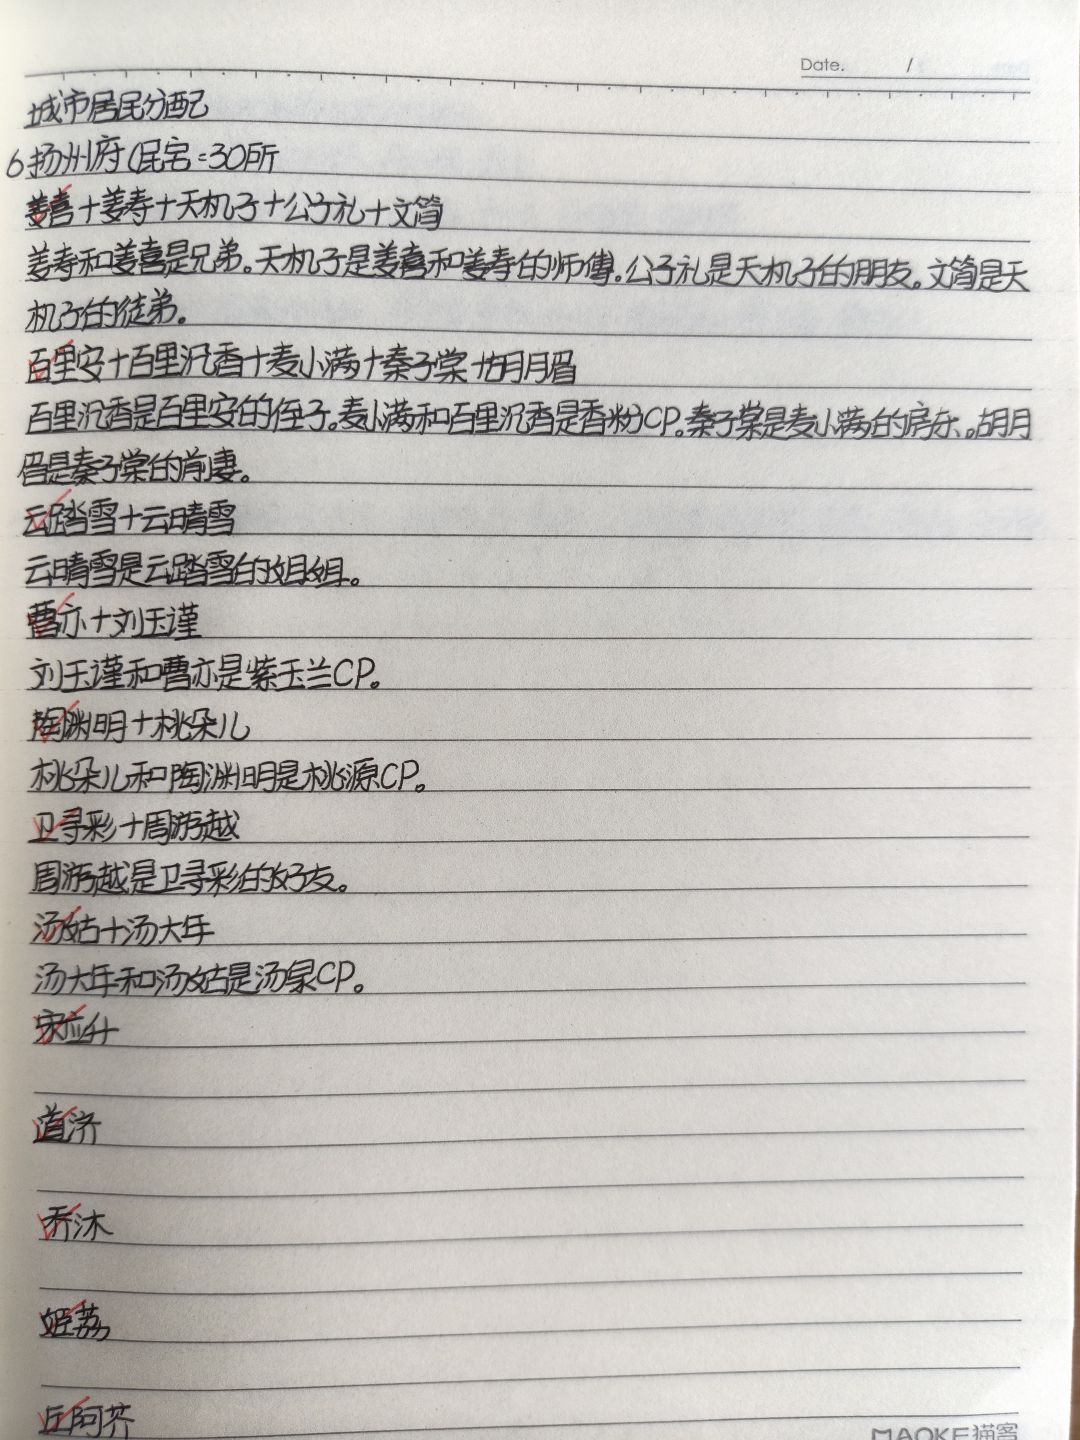 Date. /
城市居民分配
6扬州府(民宅=30所
姜喜+姜寿+天机子+公子礼+文简
姜寿和姜喜是兄弟。天机子是姜喜和姜寿的师傅。公子礼是天机子的朋友。文简是天
机子的徒弟。
百里安+百里沉香+麦小满+秦子棠+胡月眉
百里沉香是百里安的侄子。麦小满和百里沉香是香粉CP。秦子棠是麦小满的房东。胡月
眉是秦子棠的前妻。
云踏雪+云晴雪
云晴雪是云踏雪的姐姐。
曹亦+刘玉谨
刘玉谨和曹亦是紫玉兰CP。
陶渊明+桃朵儿
桃朵儿和陶渊明是桃源CP。
卫寻彩+周游越
周游越是卫寻彩的好友。
汤姑+汤大年
汤大年和汤姑是汤泉CP。
宋应升
道济
乔沐
姬荔
丘阿芥
MAOKE猫客